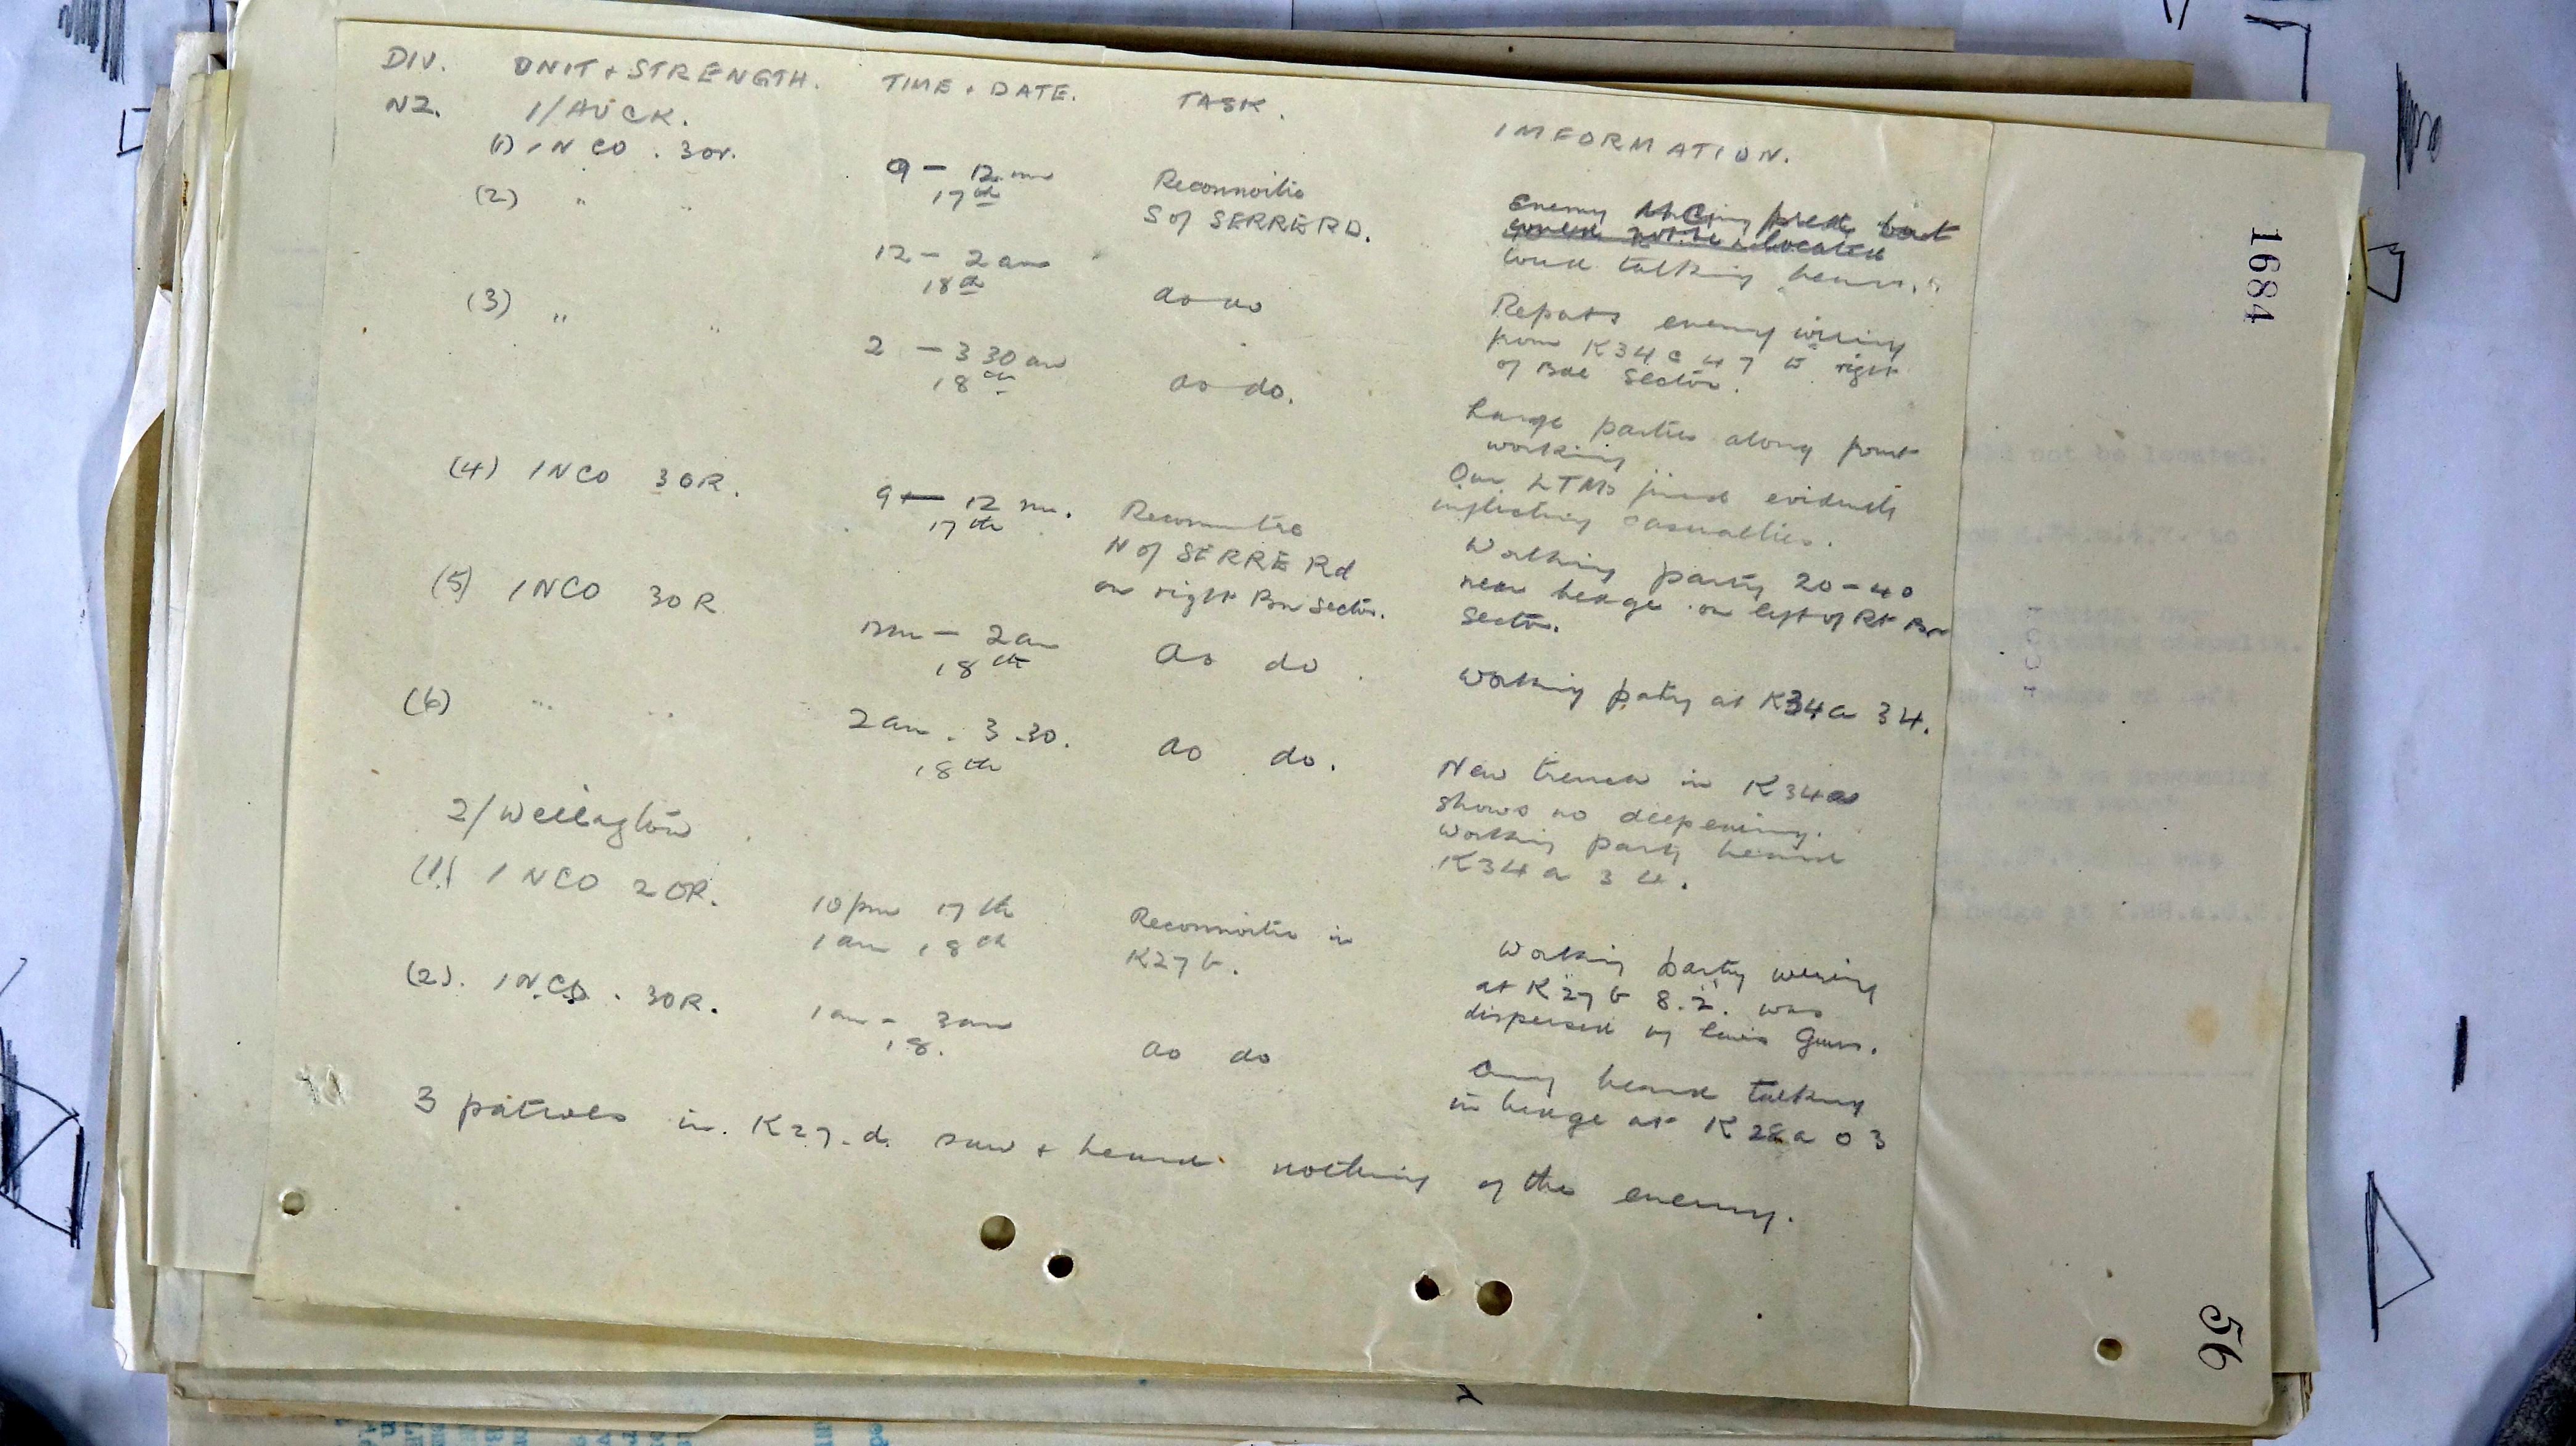 DIV. UNIT + STRENGTH. TIME + DATE. TASK. IMFORMATION.
NZ. 1/AUCK.
(1) 1 NCO . 3 or. 9 — 12 mn Reconnoitre
17th S of SERRE RD.
Enemy but
located
loud talking heard.
(2) " " 12 — 2 am as do
18th
Reports enemy wiring
from K34 c 4 7 to right
of Bde Sector.
(3) " " 2 — 3 30 am as do.
18th
Large parties along front
working
Our LTMs fired evidently
inflicting casualties.
(4) 1 NCO 3 OR. 9 — 12 mn. Reconnoitre
17th N of SERRE Rd
on right Bn Sector.
Working party 20-40
near hedge on left of Rt Bn
Sector.
(5) 1 NCO 3 OR 12mn — 2 am as do.
18th
Working paty at K34a 34.
(6) " " 2 am . 3.30. as do.
18th
New trench in K34a
shows no deepening.
Working party heard
K34 a 3 4.
2/Wellington
(1) 1 NCO 2 OR. 10 pm 17th Reconnoitre in
1 am 18th K27 b.
Working party wiring
at K 27 b 8.2. was
dispersed by Lewis Guns.
(2). 1 N.C.O. 3 OR. 1 am - 3 am as do
18.
Enemy heard talking
in hedge at K 28 a 0 3
3 patrols in K27.d. saw + heard nothing of the enemy.
1684
56
not be located.